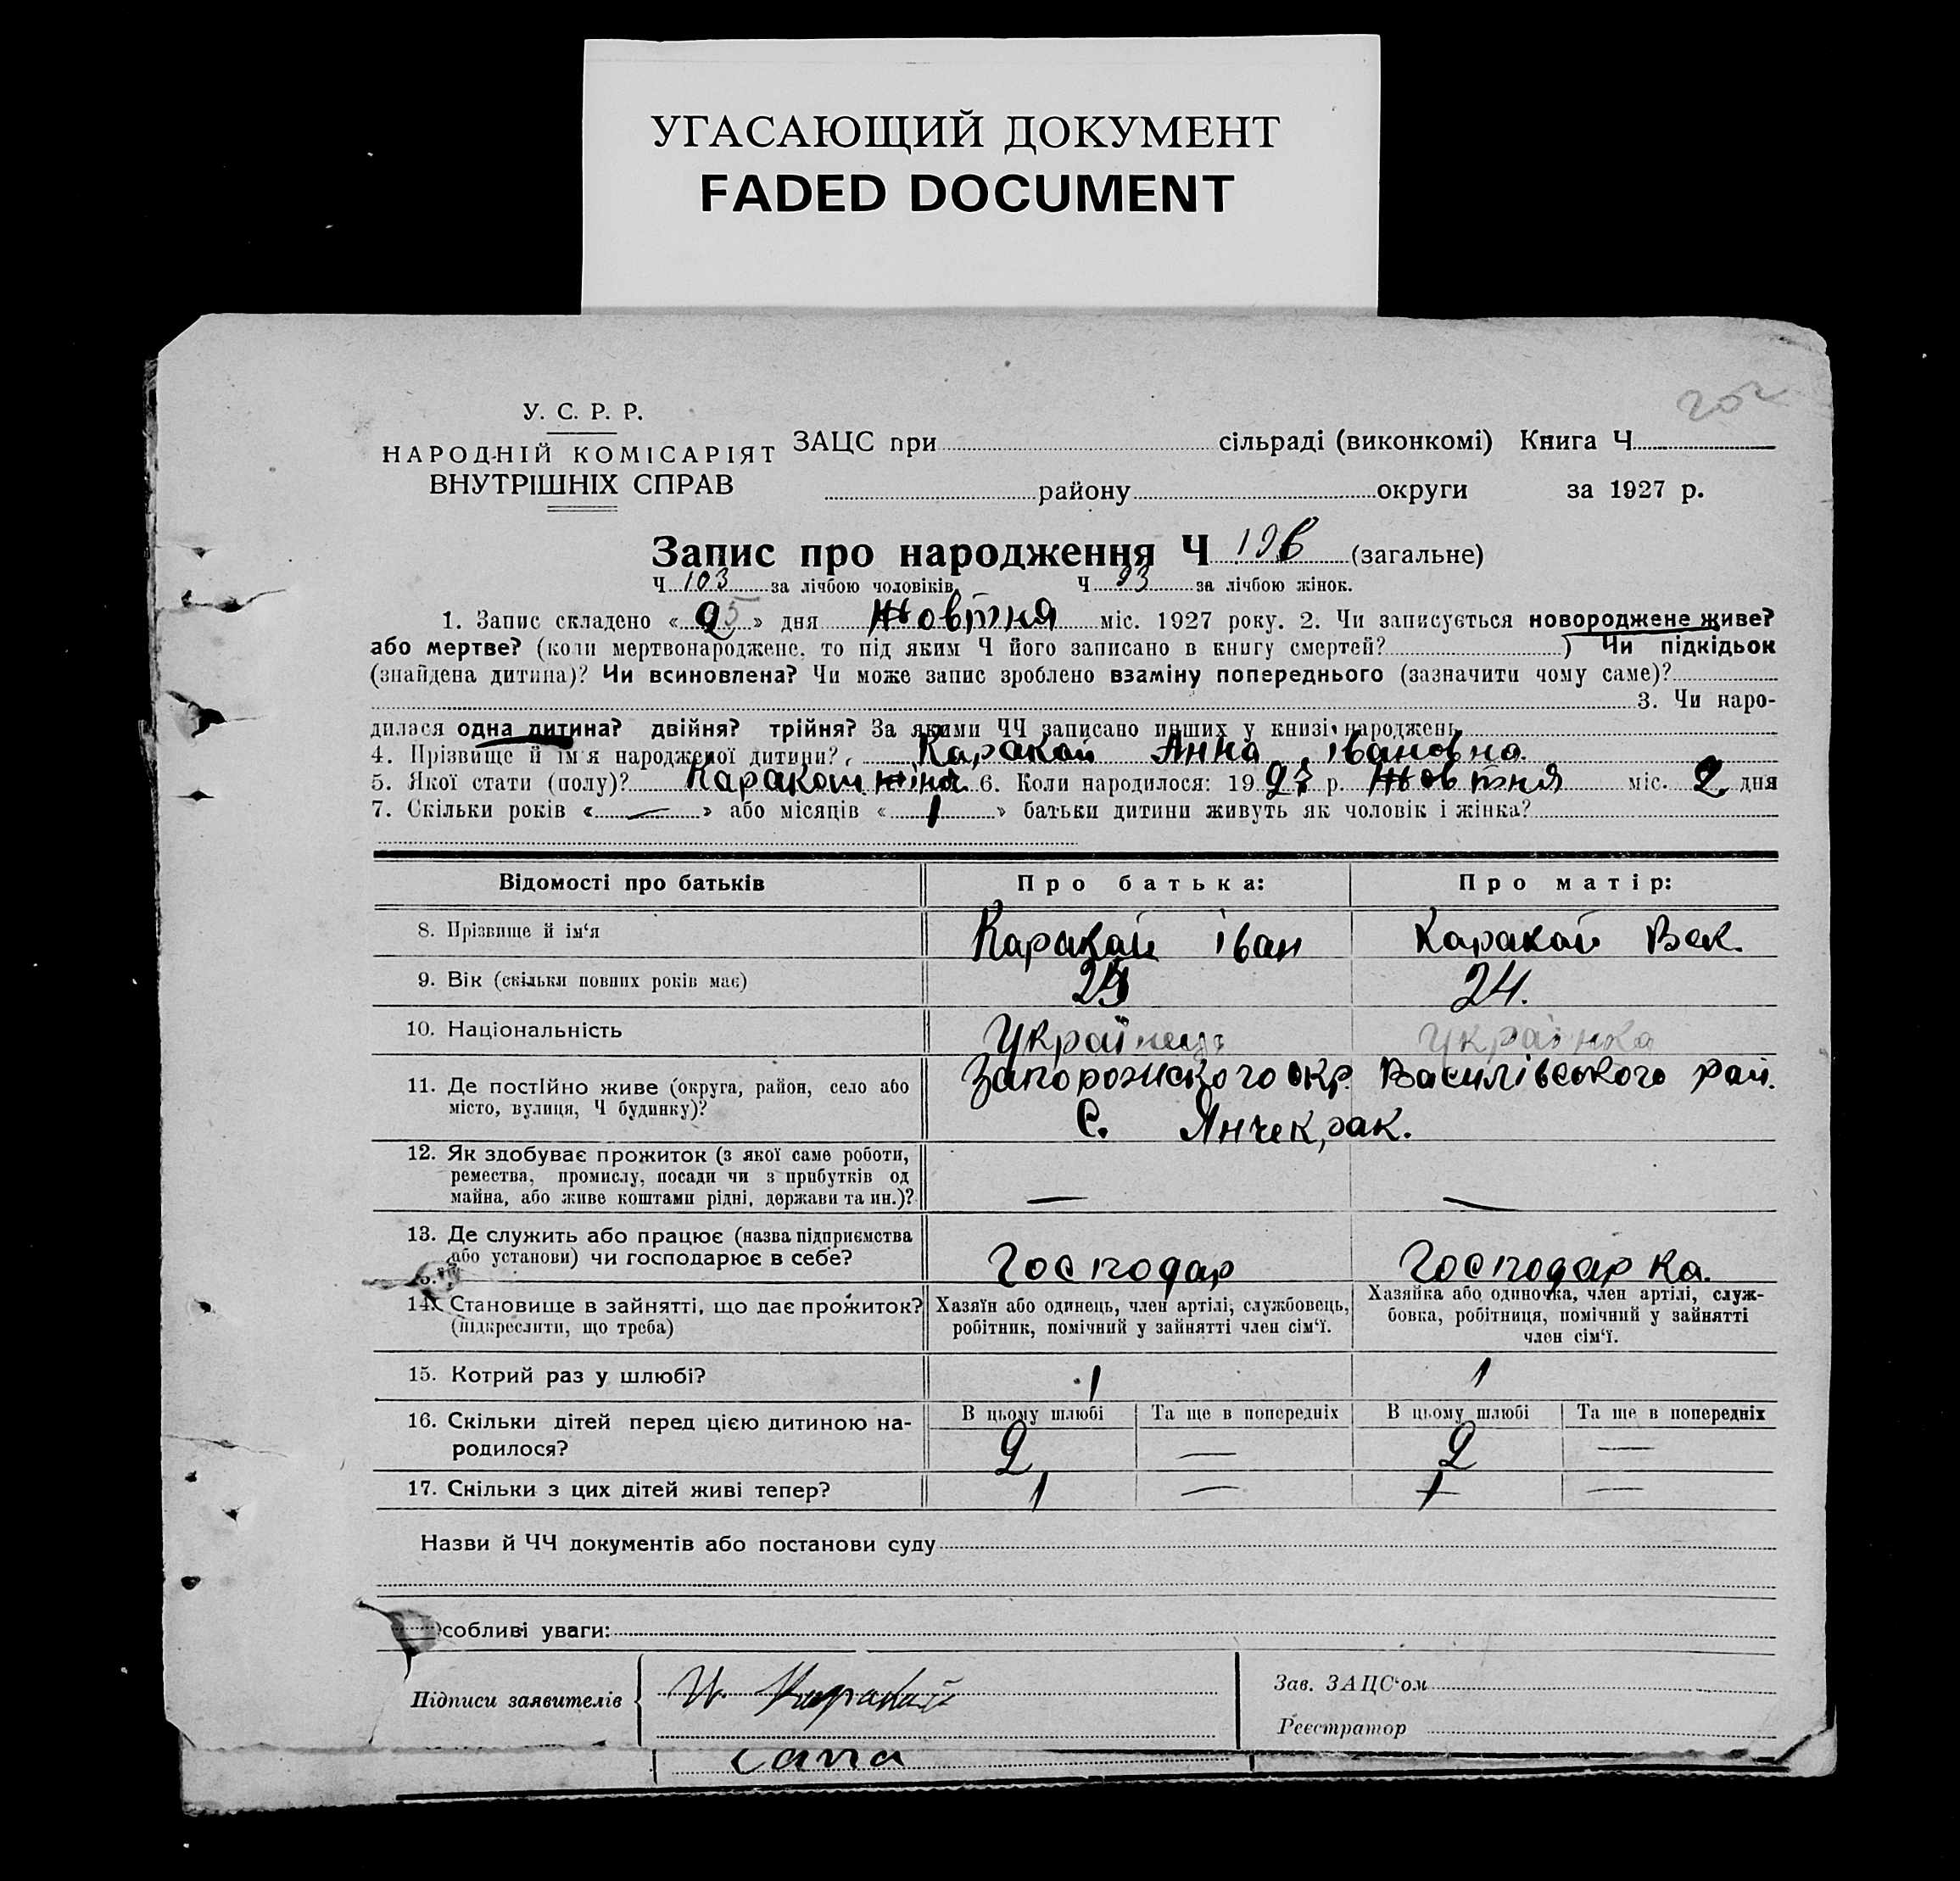 УГАСАЮЩИЙ ДОКУМЕНТ
FADED DOCUMENT
202
У. С. Р. Р.
НАРОДНІЙ КОМІСАРІЯТ
ВНУТРІШНІХ СПРАВ
ЗАЦС при сільраді (виконкомі) Книга Ч
району округи за 1927 р.
Запис про народження Ч 196 (загальне)
Ч 103 за лічбою чоловіків. Ч 93 за лічбою жінок.
1. Запис складено « 25 » дня Жовтня міс. 1927 року. 2. Чи записується новороджене живе?
або мертве? (коли мертвонароджене, то під яким Ч його записано в книгу смертей? ) Чи підкідьок
(знайдена дитина)? Чи всиновлена? Чи може запис зроблено взаміну попереднього (зазначити чому саме)?
3. Чи наро-
дилася одна дитина? двійня? трійня? За якими ЧЧ записано инших у книзі народжень
4. Прізвище й ім'я народженої дитини? Каракай Анна Івановна
5. Якої стати (полу)? 6. Коли народилося: 1927 р. Жовтня міс. 2 дня
7. Скільки років « — » або місяців « 1 » батьки дитини живуть як чоловік і жінка?
Відомості про батьків Про батька: Про матір:
8. Прізвище й ім'я Каракай Іван Каракай Век.
9. Вік (скільки повних років має) 24.
10. Національність Українець Українка
11. Де постійно живе (округа, район, село або
місто, вулиця, Ч будинку)?
Запорожского окр. Василівського рай.
С. Янчекрак.
12. Як здобуває прожиток (з якої саме роботи,
ремества, промислу, посади чи з прибутків од
майна, або живе коштами рідні, держави та ин.)? — —
13. Де служить або працює (назва підприємства
або установи) чи господарює в себе? Господар Господарка.
14. Становище в зайнятті, що дає прожиток?
(підкреслити, що треба)
Хазяїн або одинець, член артілі, службовець,
робітник, помічний у зайнятті член сім'ї.
Хазяйка або одиночка, член артілі, служ-
бовка, робітниця, помічний у зайнятті
член сім'ї.
15. Котрий раз у шлюбі? 1 1
16. Скільки дітей перед цією дитиною на-
родилося?
В цьому шлюбі Та ще в попередніх В цьому шлюбі Та ще в попередніх
2 — 2 —
17. Скільки з цих дітей живі тепер? 1 — 1 —
Назви й ЧЧ документів або постанови суду
собливі уваги:
Підписи заявителів И. Каракай
Зав. ЗАЦС'ом
Реєстратор